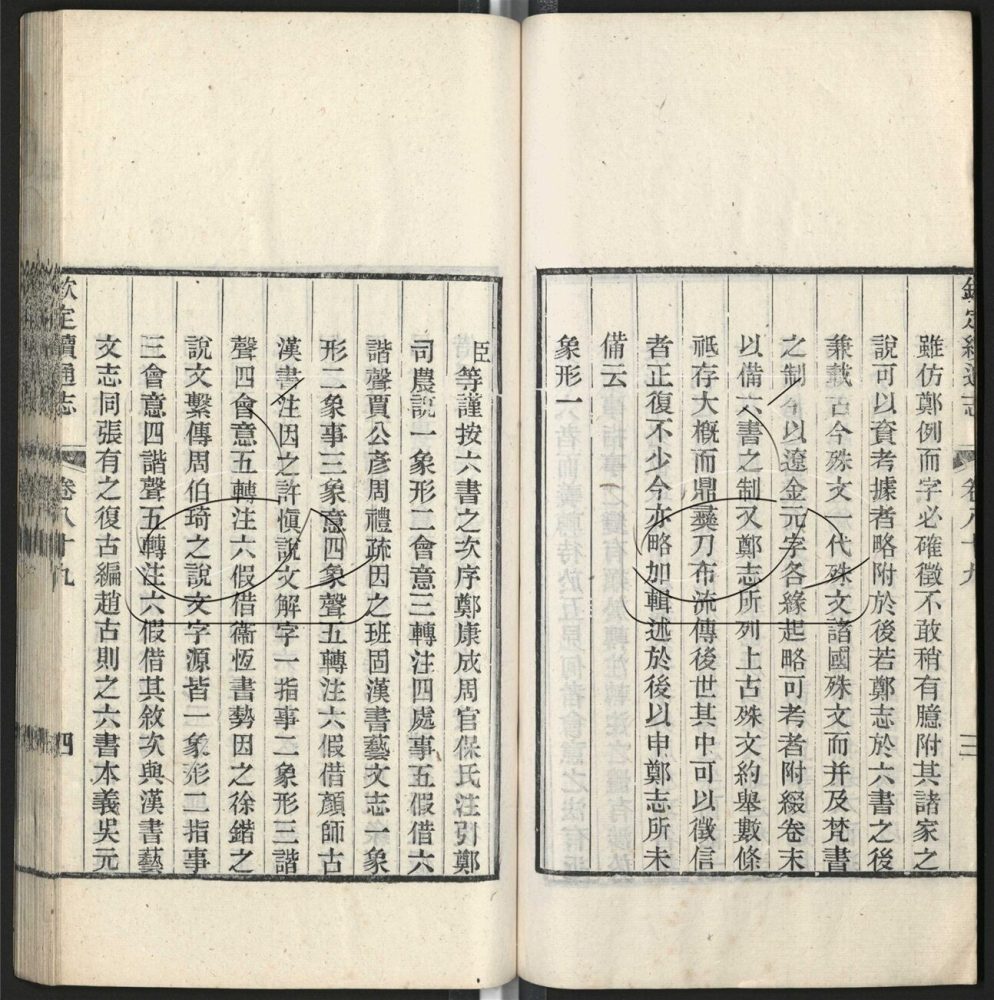 欽定續通志 卷八十九 三
雖仿鄭例而字必確徵不敢稍有臆附其諸家之
說可以資考據者略附於後若鄭志於六書之後
兼載古今殊文一代殊文諸國殊文而并及梵書
之制今以遼金元字各緣起略可考者附綴卷末
以備六書之制又鄭志所列上古殊文約舉數條
祗存大概而鼎彝刀布流傳後世其中可以徵信
者正復不少今亦略加輯述於後以申鄭志所未
備云
象形一
臣等謹按六書之次序鄭康成周官保氏注引鄭
司農說一象形二會意三轉注四處事五假借六
諧聲賈公彥周禮疏因之班固漢書藝文志一象
形二象事三象意四象聲五轉注六假借顏師古
漢書注因之許慎說文解字一指事二象形三諧
聲四會意五轉注六假借衞恆書勢因之徐鍇之
說文繫傳周伯琦之說文字源皆一象形二指事
三會意四諧聲五轉注六假借其敘次與漢書藝
文志同張有之復古編趙古則之六書本義吳元
欽定續通志 卷八十九 四